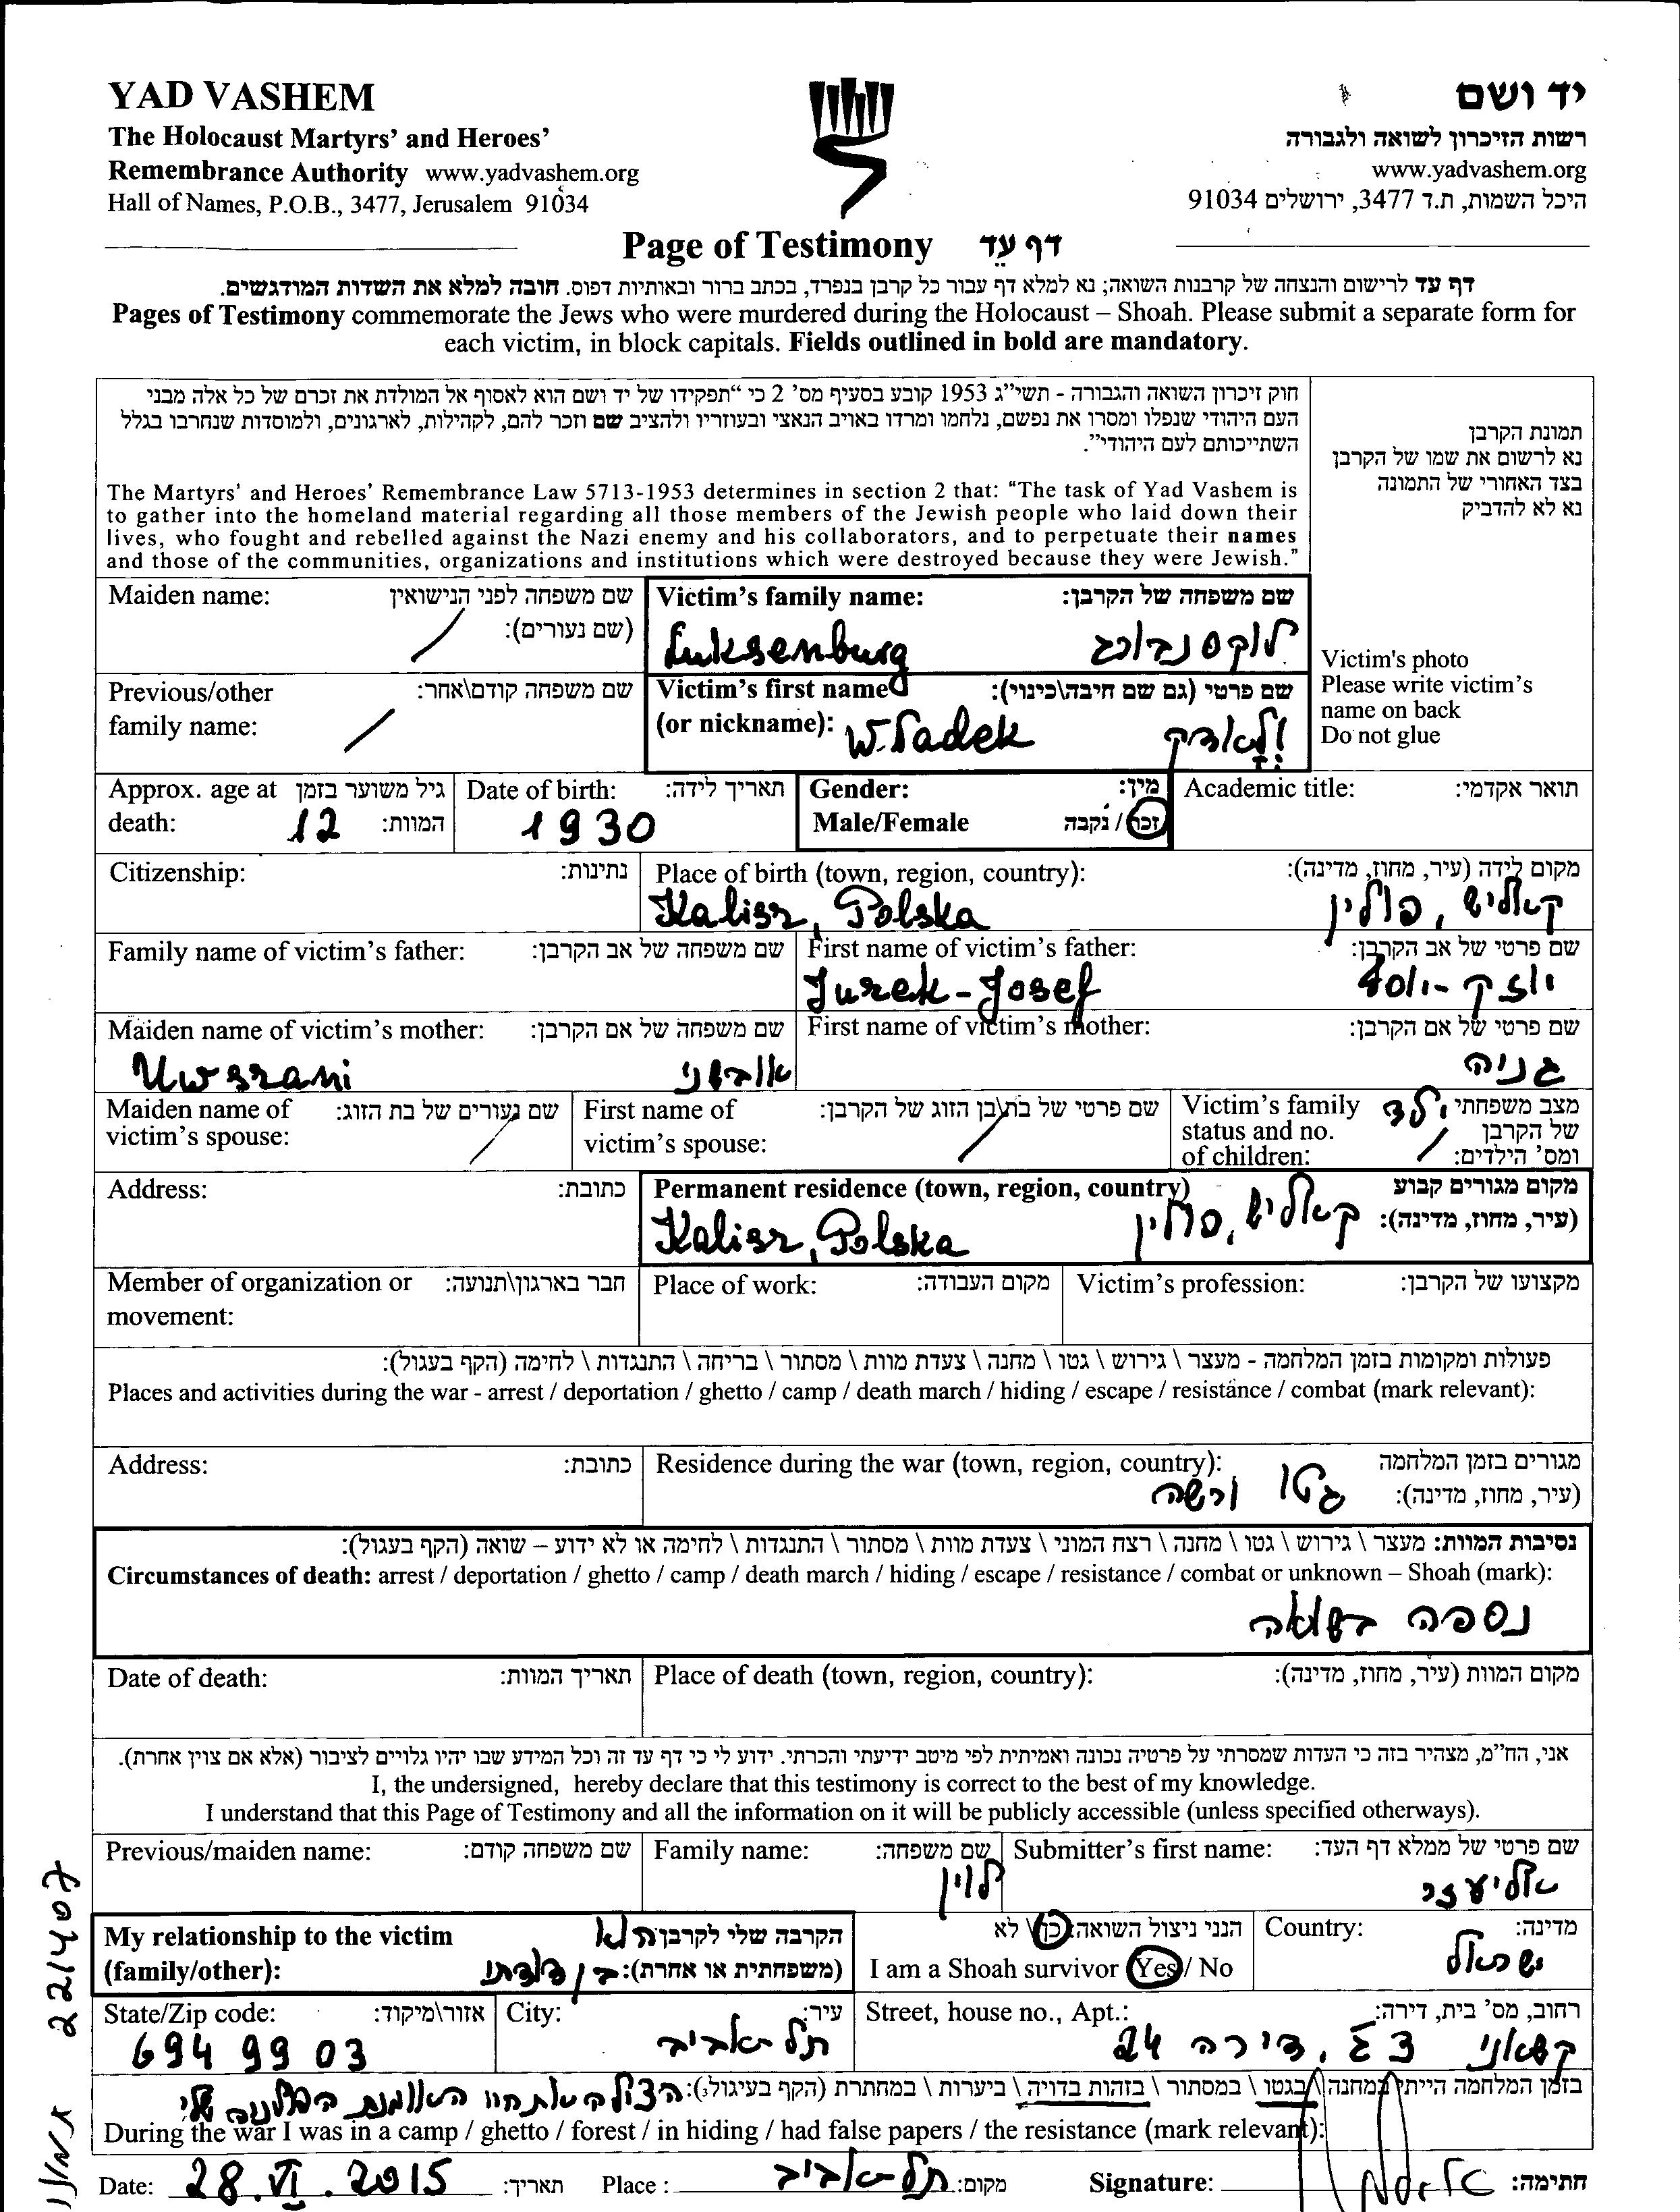 YAD VASHEM
The Holocaust Martyrs' and Heroes'
Remembrance Authority www.yadvashem.org
Hall of Names, P.O.B., 3477, Jerusalem 91034
יד ושם
רשות הזיכרון לשואה ולגבורה
www.yadvashem.org
היכל השמות, ת.ד 3477, ירושלים 91034
Page of Testimony דף עֵד
דף עד לרישום והנצחה של קרבנות השואה; נא למלא דף עבור כל קרבן בנפרד, בכתב ברור ובאותיות דפוס. חובה למלא את השדות המודגשים.
Pages of Testimony commemorate the Jews who were murdered during the Holocaust – Shoah. Please submit a separate form for
each victim, in block capitals. Fields outlined in bold are mandatory.
חוק זיכרון השואה והגבורה - תשי"ג 1953 קובע בסעיף מס' 2 כי "תפקידו של יד ושם הוא לאסוף אל המולדת את זכרם של כל אלה מבני
העם היהודי שנפלו ומסרו את נפשם, נלחמו ומרדו באויב הנאצי ובעוזריו ולהציב שם וזכר להם, לקהילות, לארגונים, ולמוסדות שנחרבו בגלל
השתייכותם לעם היהודי".
The Martyrs' and Heroes' Remembrance Law 5713-1953 determines in section 2 that: "The task of Yad Vashem is
to gather into the homeland material regarding all those members of the Jewish people who laid down their
lives, who fought and rebelled against the Nazi enemy and his collaborators, and to perpetuate their names
and those of the communities, organizations and institutions which were destroyed because they were Jewish."
תמונת הקרבן
נא לרשום את שמו של הקרבן
בצד האחורי של התמונה
נא לא להדביק
Victim's photo
Please write victim's
name on back
Do not glue
Maiden name: שם משפחה לפני הנישואין
(שם נעורים):
Victim's family name: שם משפחה של הקרבן:
Luksenburg לוקסנבורג
Previous/other שם משפחה קודם\אחר:
family name:
Victim's first name שם פרטי (גם שם חיבה\כינוי):
(or nickname): Wladek ולאדק
Approx. age at גיל משוער בזמן
death: 12 המוות:
Date of birth: תאריך לידה:
1930
Gender: מין:
Male/Female זכר / נקבה
Academic title: תואר אקדמי:
Citizenship: נתינות:
Place of birth (town, region, country): מקום לידה (עיר, מחוז, מדינה):
Kalisz, Polska קאליש, פולין
Family name of victim's father: שם משפחה של אב הקרבן:
First name of victim's father: שם פרטי של אב הקרבן:
Jurek-Josef יורק-יוסף
Maiden name of victim's mother: שם משפחה של אם הקרבן:
Uwszani אובשני
First name of victim's mother: שם פרטי של אם הקרבן:
גניה
Maiden name of שם נעורים של בת הזוג:
victim's spouse:
First name of שם פרטי של בת\בן הזוג של הקרבן:
victim's spouse:
Victim's family מצב משפחתי ילד
status and no. של הקרבן
of children: ומס' הילדים:
Address: כתובת:
Permanent residence (town, region, country) מקום מגורים קבוע
(עיר, מחוז, מדינה):
Kalisz, Polska קאליש, פולין
Member of organization or חבר בארגון\תנועה:
movement:
Place of work: מקום העבודה:
Victim's profession: מקצועו של הקרבן:
פעולות ומקומות בזמן המלחמה - מעצר \ גירוש \ גטו \ מחנה \ צעדת מוות \ מסתור \ בריחה \ התנגדות \ לחימה (הקף בעגול):
Places and activities during the war - arrest / deportation / ghetto / camp / death march / hiding / escape / resistance / combat (mark relevant):
Address: כתובת:
Residence during the war (town, region, country): מגורים בזמן המלחמה
(עיר, מחוז, מדינה):
גטו ורשה
נסיבות המוות: מעצר \ גירוש \ גטו \ מחנה \ רצח המוני \ צעדת מוות \ מסתור \ התנגדות \ לחימה או לא ידוע – שואה (הקף בעגול):
Circumstances of death: arrest / deportation / ghetto / camp / death march / hiding / escape / resistance / combat or unknown – Shoah (mark):
נספה בשואה
Date of death: תאריך המוות:
Place of death (town, region, country): מקום המוות (עיר, מחוז, מדינה):
אני, הח"מ, מצהיר בזה כי העדות שמסרתי על פרטיה נכונה ואמיתית לפי מיטב ידיעתי והכרתי. ידוע לי כי דף עד זה וכל המידע שבו יהיו גלויים לציבור (אלא אם צוין אחרת).
I, the undersigned, hereby declare that this testimony is correct to the best of my knowledge.
I understand that this Page of Testimony and all the information on it will be publicly accessible (unless specified otherways).
Previous/maiden name: שם משפחה קודם:
Family name: שם משפחה:
לוין
Submitter's first name: שם פרטי של ממלא דף העד:
אליעזר
My relationship to the victim הקרבה שלי לקרבן הוא
(family/other): (משפחתית או אחרת): בן דודתי
הנני ניצול השואה: כן \ לא
I am a Shoah survivor Yes / No
Country: מדינה:
ישראל
State/Zip code: אזור\מיקוד:
694 99 03
City: עיר:
תל אביב
Street, house no., Apt.: רחוב, מס' בית, דירה:
קשאני 3ג, דירה 24
בזמן המלחמה הייתי במחנה \ בגטו \ במסתור \ בזהות בדויה \ ביערות \ במחתרת (הקף בעיגול):
During the war I was in a camp / ghetto / forest / in hiding / had false papers / the resistance (mark relevant):
Date: 28.VI.2015 תאריך:
Place: תל-אביב מקום:
Signature: חתימה:
221407